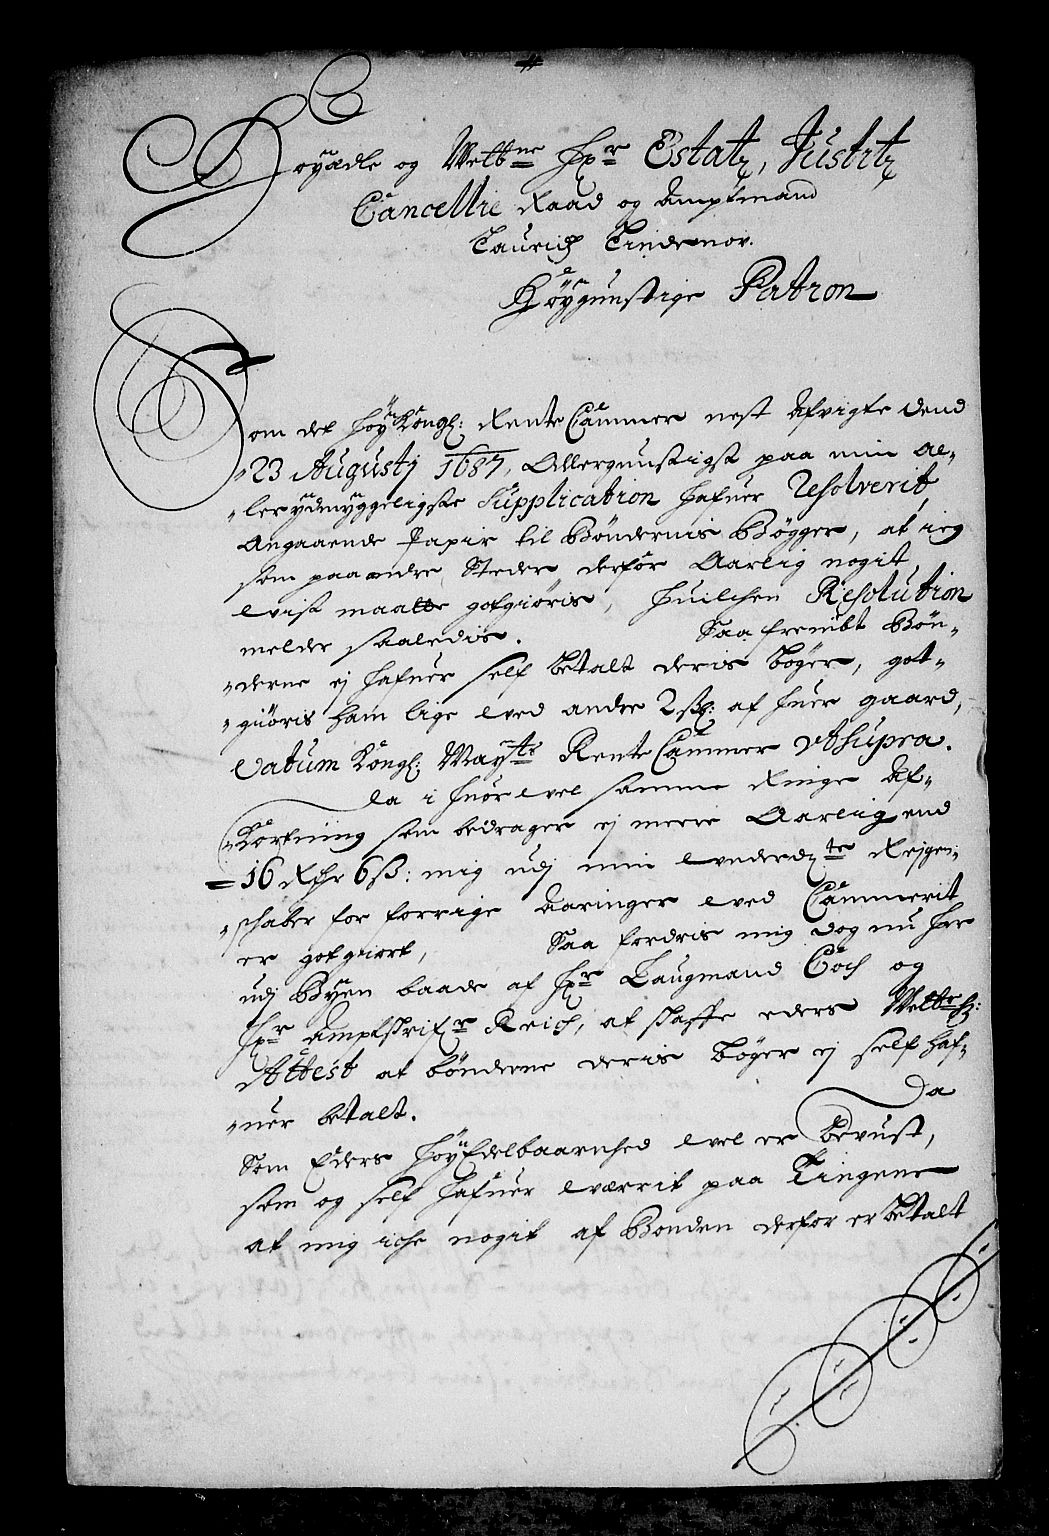 Høyædle og Welbne Hr Estatz, Justitz
Cancellie Raad og Amptmand
Lauritz Lindenov.
Høygunstige Patron
Som det høy Kongl: Rente Cammer nest afvigte dend
23 Augustj 1687, Allergunstigst paa min al-
ler ydmyggeligste Supplication hafuer Resolverit,
Angaaende Papir til Böndernis Bøgger, at ieg
som paa andre Steder, derfor Aarlig nogit
wist maatte godtgiöris, huilchen Resolution
melder saaledis. Saa fremt Bön-
derne ej hafuer self betalt deris bøger, got-
giöris ham lige wed andre 2 sk: af huer gaard,
Datum Kongl: Mayts Rente Cammer Utsupra.
Da i huor wel samme Ringe Af-
Kortning som bedrager ej meere Aarlig end
16 Rdr 6 ß: mig udj min underdte Regen-
schaber for forrige Aaringer wed Cammerit
er gotgiort, Saa fordris mig dog nu her
udj Byen baade af Hr Laugmand Coch og
Hr Amptskrifr Reich, at skaffe eders Welbrhz:
Attest at bönderne deris bøger ej self haf-
uer betalt. Da
Som Eders HøyEdelbaarnhed wel er bevust,
som og self hafuer wærrit paa Tingene
at mig iche nogit af Bonden derfor er betalt